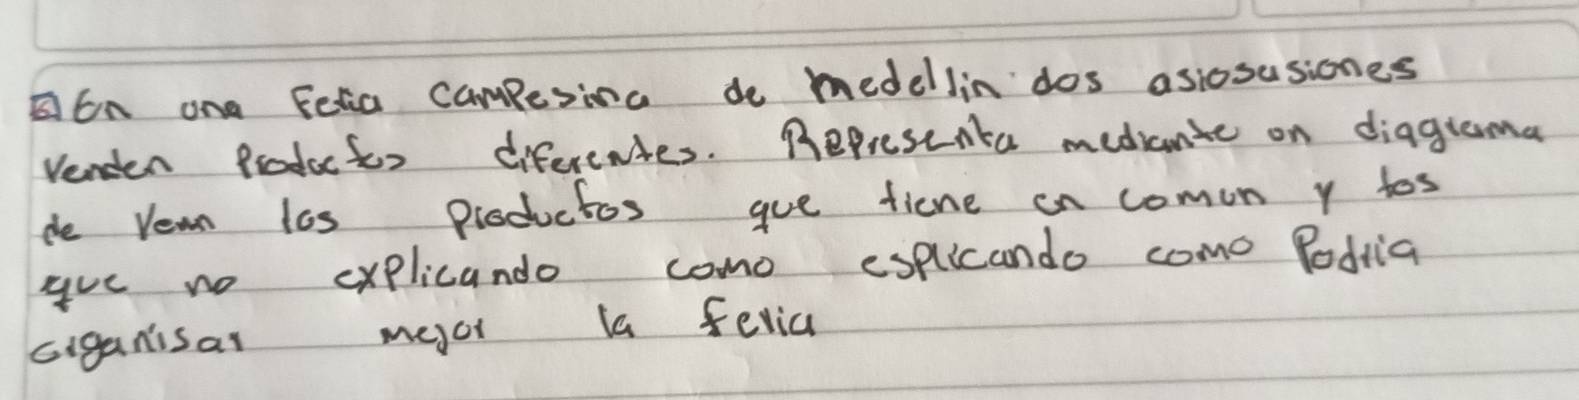 6 En una Feria campesina de medellin dos asiosusiones
venden Productos diferentes. Representa mediante on diagrama
de Venn los productos que tiene en comun y los
que no explicando como esplicando como Podria
organisar mejor la feria